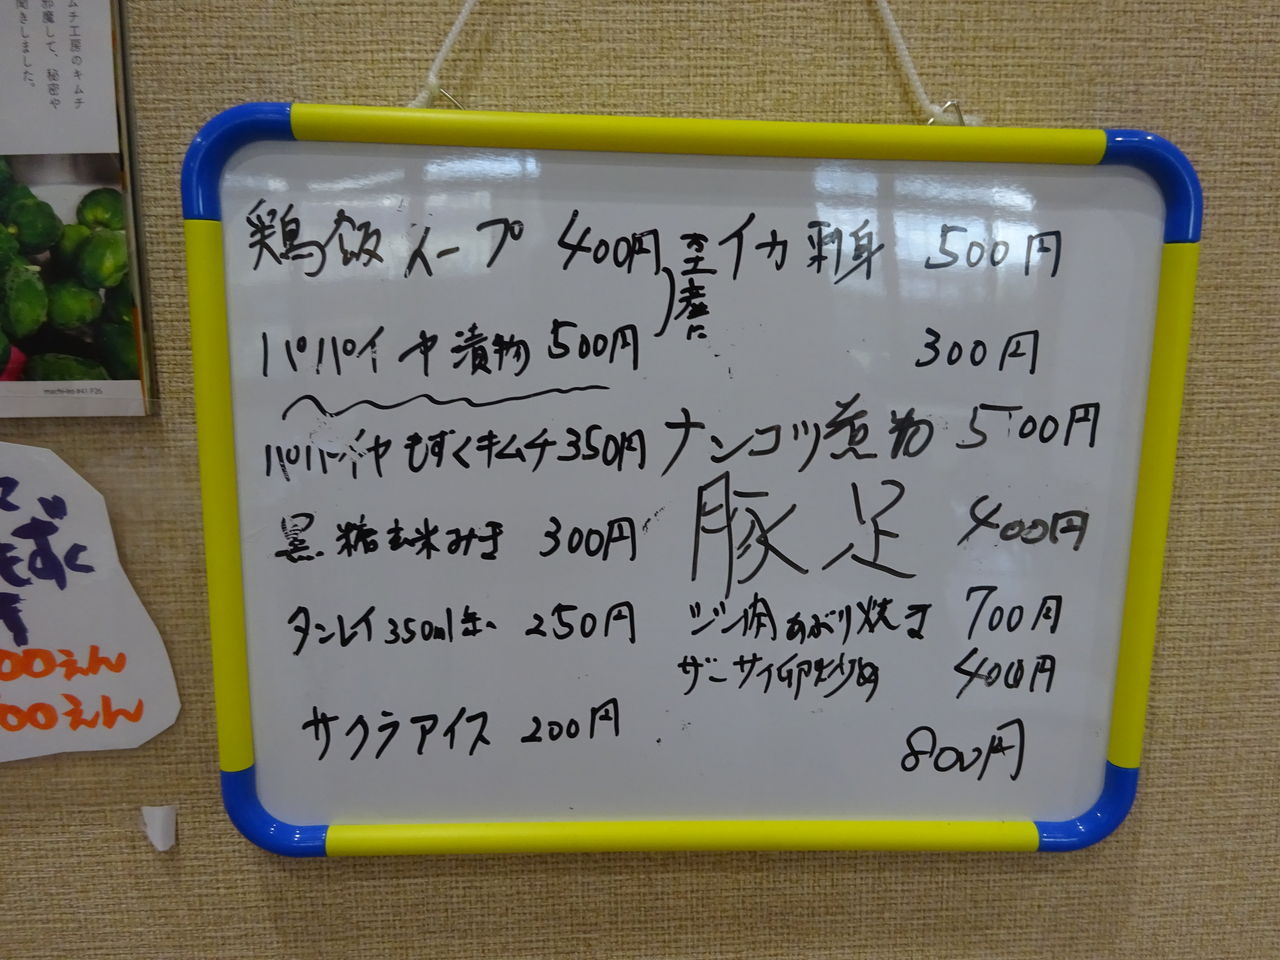 ムチ工房のキムチ
邪魔して、秘密や
聞きしました。
machi-iro #41 P26
もずく
00えん
00えん
鶏飯スープ 400円
パパイヤ漬物 500円
パパイヤもずくキムチ 350円
黒糖玄米みき 300円
タンレイ 350ml缶 250円
サクラアイス 200円
土産に
イカ刺身 500円
300円
ナンコツ煮物 500円
豚足 400円
シシ肉あぶり焼き 700円
ザーサイ卵炒め 400円
800円